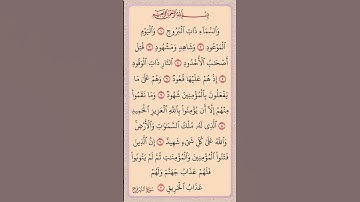 بِسْمِ اللَّهِ الرَّحْمَٰنِ الرَّحِيمِ
وَالسَّمَاءِ ذَاتِ الْبُرُوجِ ۝ وَالْيَوْمِ
الْمَوْعُودِ ۝ وَشَاهِدٍ وَمَشْهُودٍ ۝ قُتِلَ
أَصْحَابُ الْأُخْدُودِ ۝ النَّارِ ذَاتِ الْوَقُودِ
۝ إِذْ هُمْ عَلَيْهَا قُعُودٌ ۝ وَهُمْ عَلَىٰ مَا
يَفْعَلُونَ بِالْمُؤْمِنِينَ شُهُودٌ ۝ وَمَا نَقَمُوا
مِنْهُمْ إِلَّا أَن يُؤْمِنُوا بِاللَّهِ الْعَزِيزِ الْحَمِيدِ
۝ الَّذِي لَهُ مُلْكُ السَّمَاوَاتِ وَالْأَرْضِ
وَاللَّهُ عَلَىٰ كُلِّ شَيْءٍ شَهِيدٌ ۝ إِنَّ الَّذِينَ
فَتَنُوا الْمُؤْمِنِينَ وَالْمُؤْمِنَاتِ ثُمَّ لَمْ يَتُوبُوا
فَلَهُمْ عَذَابُ جَهَنَّمَ وَلَهُمْ
عَذَابُ الْحَرِيقِ ۝
سُورَةُ الْبُرُوجِ